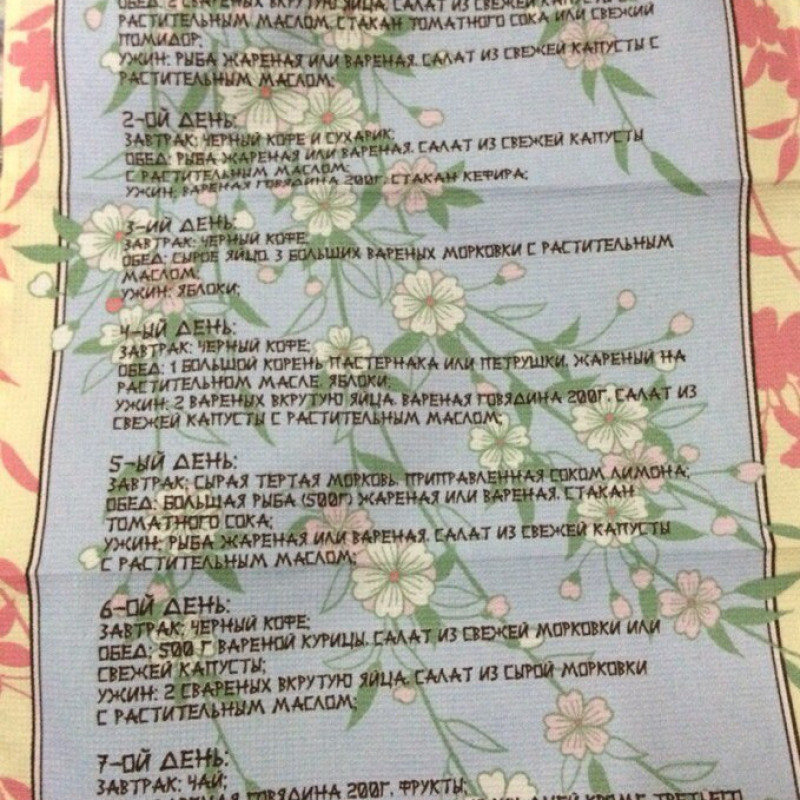 ОБЕД: 2 СВАРЕНЫХ ВКРУТУЮ ЯЙЦА. САЛАТ ИЗ СВЕЖЕЙ КАПУСТЫ
РАСТИТЕЛЬНЫМ МАСЛОМ. СТАКАН ТОМАТНОГО СОКА ИЛИ СВЕЖИЙ
ПОМИДОР;
УЖИН: РЫБА ЖАРЕНАЯ ИЛИ ВАРЕНАЯ. САЛАТ ИЗ СВЕЖЕЙ КАПУСТЫ С
РАСТИТЕЛЬНЫМ МАСЛОМ;
2-ОЙ ДЕНЬ:
ЗАВТРАК: ЧЕРНЫЙ КОФЕ И СУХАРИК;
ОБЕД: РЫБА ЖАРЕНАЯ ИЛИ ВАРЕНАЯ. САЛАТ ИЗ СВЕЖЕЙ КАПУСТЫ
С РАСТИТЕЛЬНЫМ МАСЛОМ;
УЖИН: ВАРЕНАЯ ГОВЯДИНА 200Г. СТАКАН КЕФИРА;
3-ИЙ ДЕНЬ:
ЗАВТРАК: ЧЕРНЫЙ КОФЕ;
ОБЕД: СЫРОЕ ЯЙЦО. 3 БОЛЬШИХ ВАРЕНЫХ МОРКОВКИ С РАСТИТЕЛЬНЫМ
МАСЛОМ;
УЖИН: ЯБЛОКИ;
4-ЫЙ ДЕНЬ:
ЗАВТРАК: ЧЕРНЫЙ КОФЕ;
ОБЕД: 1 БОЛЬШОЙ КОРЕНЬ ПАСТЕРНАКА ИЛИ ПЕТРУШКИ, ЖАРЕНЫЙ НА
РАСТИТЕЛЬНОМ МАСЛЕ. ЯБЛОКИ;
УЖИН: 2 ВАРЕНЫХ ВКРУТУЮ ЯЙЦА. ВАРЕНАЯ ГОВЯДИНА 200Г. САЛАТ ИЗ
СВЕЖЕЙ КАПУСТЫ С РАСТИТЕЛЬНЫМ МАСЛОМ;
5-ЫЙ ДЕНЬ:
ЗАВТРАК: СЫРАЯ ТЕРТАЯ МОРКОВЬ, ПРИПРАВЛЕННАЯ СОКОМ ЛИМОНА;
ОБЕД: БОЛЬШАЯ РЫБА (500Г) ЖАРЕНАЯ ИЛИ ВАРЕНАЯ. СТАКАН
ТОМАТНОГО СОКА;
УЖИН: РЫБА ЖАРЕНАЯ ИЛИ ВАРЕНАЯ. САЛАТ ИЗ СВЕЖЕЙ КАПУСТЫ
С РАСТИТЕЛЬНЫМ МАСЛОМ;
6-ОЙ ДЕНЬ:
ЗАВТРАК: ЧЕРНЫЙ КОФЕ;
ОБЕД: 500 Г ВАРЕНОЙ КУРИЦЫ. САЛАТ ИЗ СВЕЖЕЙ МОРКОВКИ ИЛИ
СВЕЖЕЙ КАПУСТЫ;
УЖИН: 2 СВАРЕНЫХ ВКРУТУЮ ЯЙЦА. САЛАТ ИЗ СЫРОЙ МОРКОВКИ
С РАСТИТЕЛЬНЫМ МАСЛОМ;
7-ОЙ ДЕНЬ:
ЗАВТРАК: ЧАЙ;
ВАРЕНАЯ ГОВЯДИНА 200Г. ФРУКТЫ;
ДНЕЙ КРОМЕ ТРЕТЬЕГО